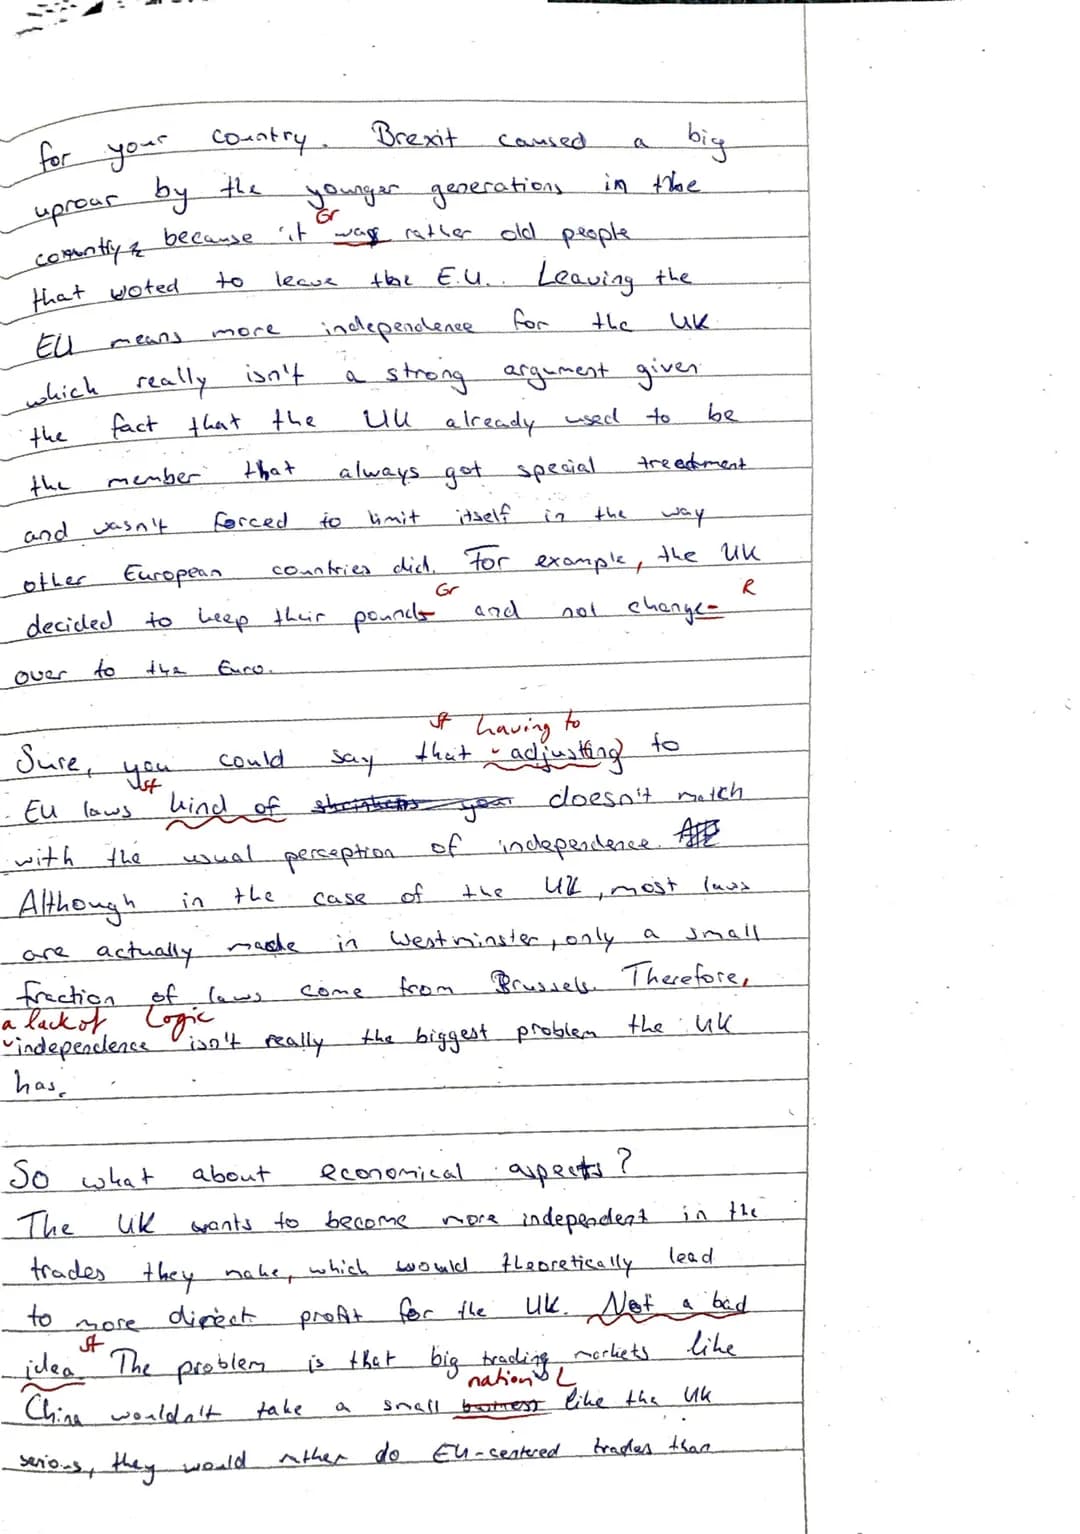 for your country. Brexit caused a big
uproar by the younger generations in the
Gr
country, because it was rather old people
that voted to leave the E.U.. Leaving the
EU means more independence for the UK
which really isn't a strong argument given
the fact that the UK already used to be
the member that always got special treedment
and wasn't forced to limit itself in the way
other European countries did. For example, the UK
Gr R
decided to keep their pounds and not change-
over to the Euro.
St having to
Sure, you could say that adjusting to
St
EU laws kind of doesn't match
with the usual perception of independence.
Although in the case of the UK, most laws
are actually made in Westminster, only a small
fraction of laws come from Brussels. Therefore,
a lack of Logic
independence isn't really the biggest problem the UK
has.
So what about economical aspects?
The UK wants to become more independent in the
trades they make, which would theoretically lead
to more direct profit for the UK. Not a bad
St
idea. The problem is that big trading markets like
nation L
China wouldn't take a small like the UK
serious, they would rather do EU-centered trades than